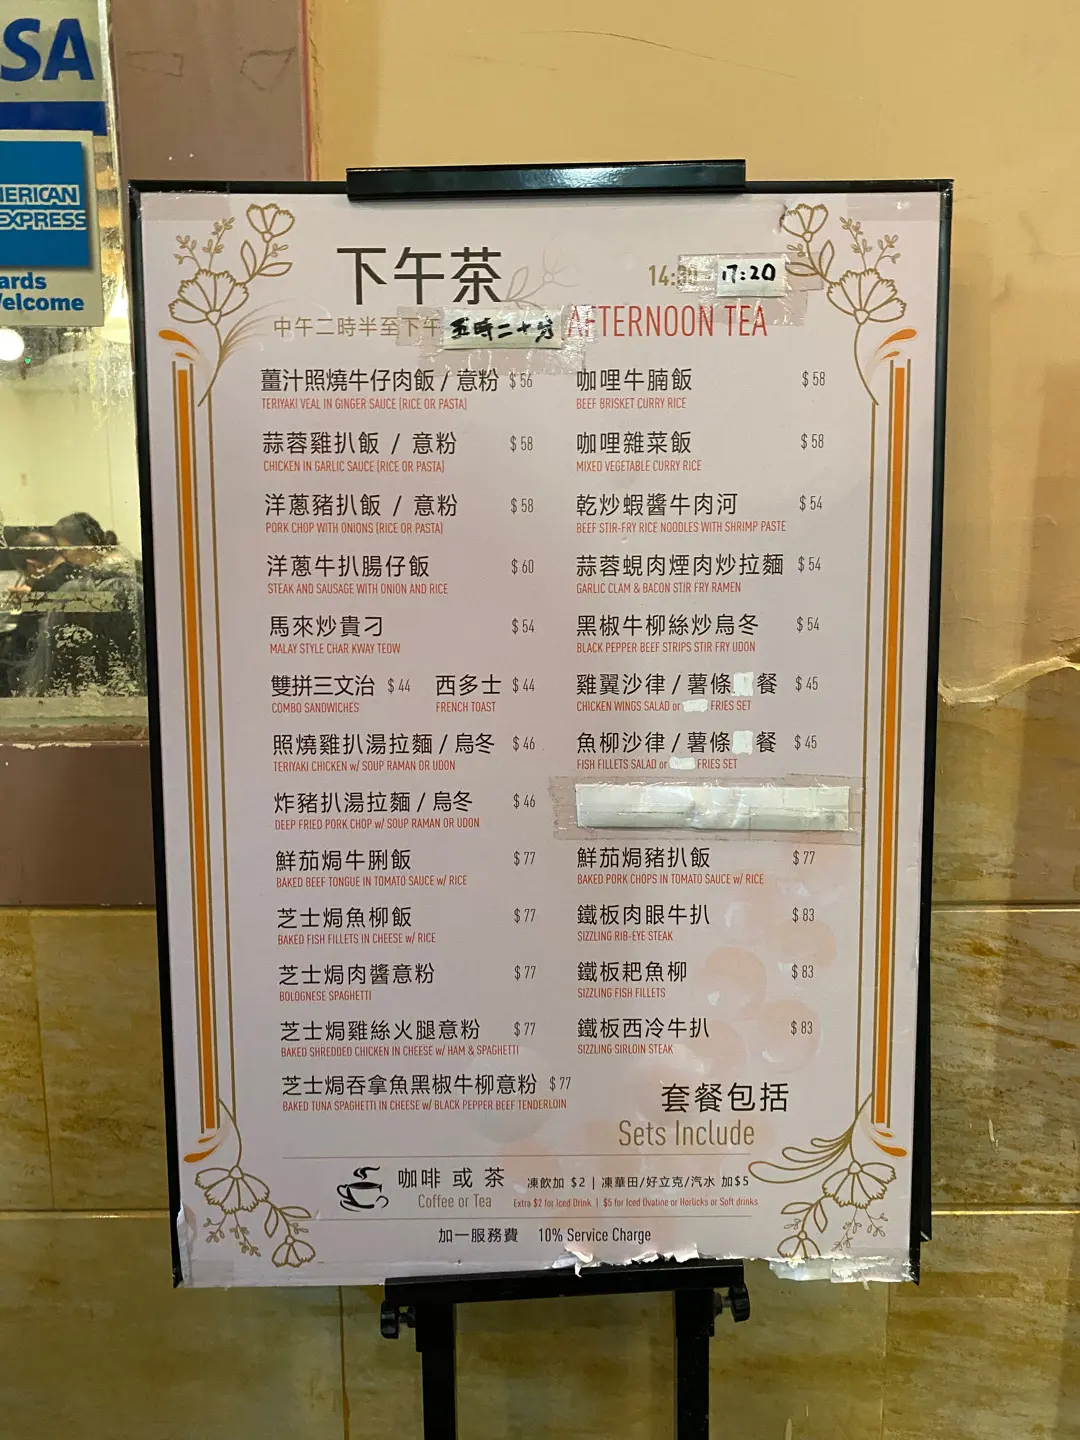 SA
ERICAN
EXPRESS
ards
elcome
下午茶
17:20
中午二時半至下午 五時二十分
AFTERNOON TEA
薑汁照燒牛仔肉飯 / 意粉 $56
TERIYAKI VEAL IN GINGER SAUCE (RICE OR PASTA)
蒜蓉雞扒飯 / 意粉 $58
CHICKEN IN GARLIC SAUCE (RICE OR PASTA)
洋蔥豬扒飯 / 意粉 $58
PORK CHOP WITH ONIONS (RICE OR PASTA)
洋蔥牛扒腸仔飯 $60
STEAK AND SAUSAGE WITH ONION AND RICE
馬來炒貴刁 $54
MALAY STYLE CHAR KWAY TEOW
雙拼三文治 $44 西多士 $44
COMBO SANDWICHES FRENCH TOAST
照燒雞扒湯拉麵 / 烏冬 $46
TERIYAKI CHICKEN w/ SOUP RAMAN OR UDON
炸豬扒湯拉麵 / 烏冬 $46
DEEP FRIED PORK CHOP w/ SOUP RAMAN OR UDON
鮮茄焗牛脷飯 $77
BAKED BEEF TONGUE IN TOMATO SAUCE w/ RICE
芝士焗魚柳飯 $77
BAKED FISH FILLETS IN CHEESE w/ RICE
芝士焗肉醬意粉 $77
BOLOGNESE SPAGHETTI
芝士焗雞絲火腿意粉 $77
BAKED SHREDDED CHICKEN IN CHEESE w/ HAM & SPAGHETTI
芝士焗吞拿魚黑椒牛柳意粉 $77
BAKED TUNA SPAGHETTI IN CHEESE w/ BLACK PEPPER BEEF TENDERLOIN
咖哩牛腩飯 $58
BEEF BRISKET CURRY RICE
咖哩雜菜飯 $58
MIXED VEGETABLE CURRY RICE
乾炒蝦醬牛肉河 $54
BEEF STIR-FRY RICE NOODLES WITH SHRIMP PASTE
蒜蓉蜆肉煙肉炒拉麵 $54
GARLIC CLAM & BACON STIR FRY RAMEN
黑椒牛柳絲炒烏冬 $54
BLACK PEPPER BEEF STRIPS STIR FRY UDON
雞翼沙律 / 薯條 餐 $45
CHICKEN WINGS SALAD or FRIES SET
魚柳沙律 / 薯條 餐 $45
FISH FILLETS SALAD or FRIES SET
鮮茄焗豬扒飯 $77
BAKED PORK CHOPS IN TOMATO SAUCE w/ RICE
鐵板肉眼牛扒 $83
SIZZLING RIB-EYE STEAK
鐵板耙魚柳 $83
SIZZLING FISH FILLETS
鐵板西冷牛扒 $83
SIZZLING SIRLOIN STEAK
套餐包括
Sets Include
咖啡 或 茶
Coffee or Tea
凍飲加 $2 | 凍華田/好立克/汽水 加$5
Extra $2 for Iced Drink | $5 for Iced Ovaltine or Horlicks or Soft drinks
加一服務費 10% Service Charge